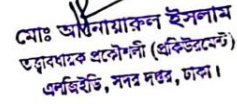 মোঃ আনোয়ারুল ইসলাম
তত্ত্বাবধায়ক প্রকৌশলী (প্রকিউরমেন্ট)
এলজিইডি, সদর দপ্তর, ঢাকা।